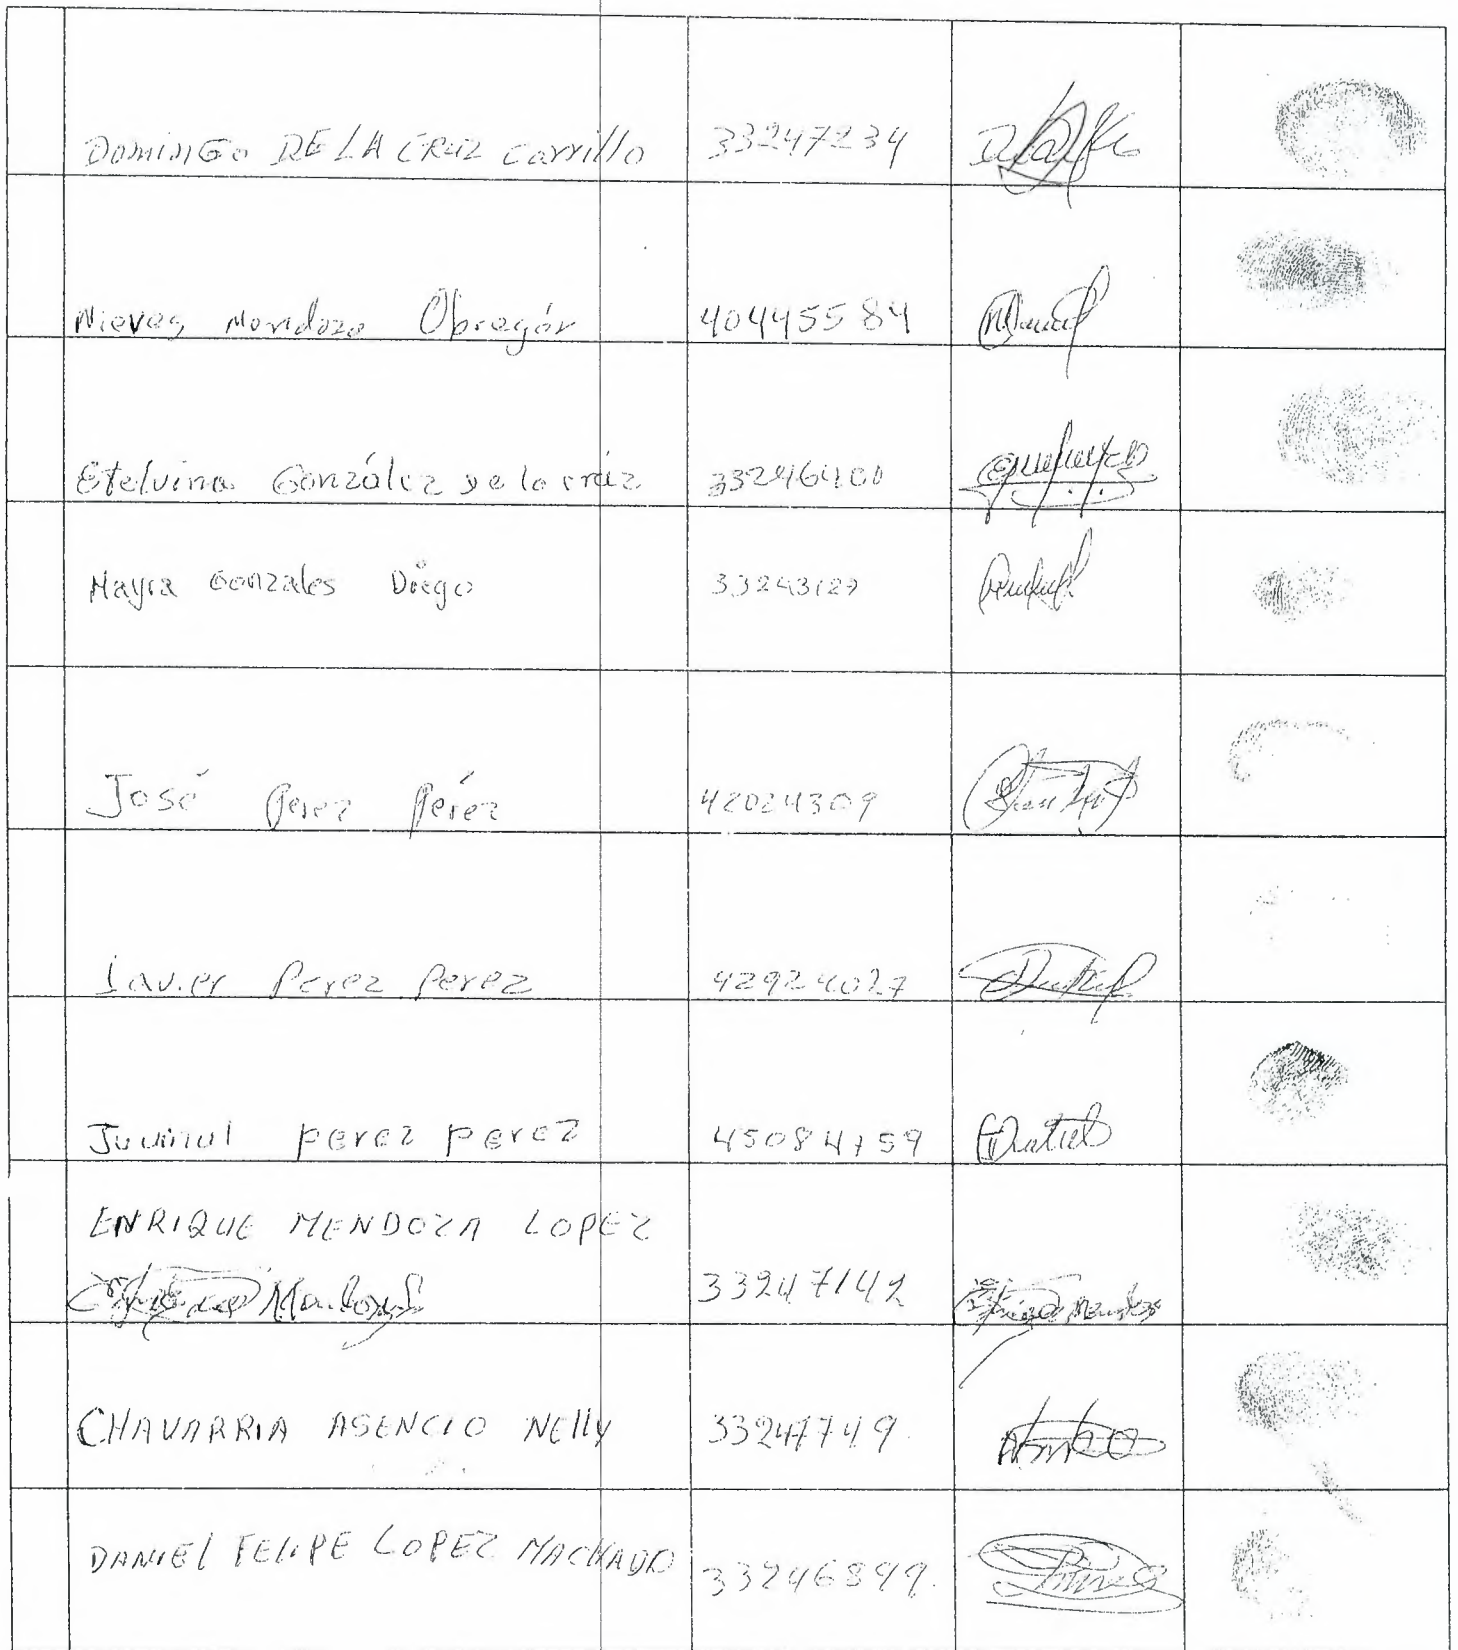 Domingo DE LA CRUZ Carrillo 33247234
Nieves Mendoza Obregón 40445584
Etelvina González de la cruz 33246400
Mayra Gonzales Diego 33243127
José Perez Pérez 42024309
Javier Perez Perez 42924027
Juvinal perez perez 45084759
ENRIQUE MENDOZA LOPEZ
33247142
CHAVARRIA ASENCIO NElly 33247749.
DANIEl FELIPE LOPEZ MACHADO 33246899.